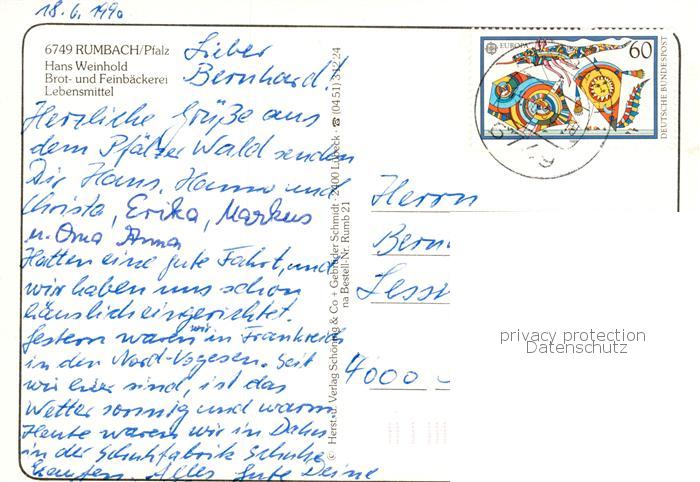 18.6.1990
6749 RUMBACH/Pfalz
Hans Weinhold
Brot- und Feinbäckerei
Lebensmittel
Lieber
Bernhard!
Herzliche Grüße aus
dem Pfälzer Wald senden
Dir Hans, Hanno und
Christa, Erika, Markus
u. Oma Anna
Hatten eine gute Fahrt, und
wir haben uns schon
häuslich eingerichtet.
Gestern waren wir in Frankreich
in den Nord-Vogesen. Seit
wir hier sind, ist das
Wetter sonnig und warm
Heute waren wir in Dahn
in der Schuhfabrik Schuhe
kaufen. Alles Gute Deine
© Herst. u. Verlag Schöning & Co + Gebrüder Schmidt · 2400 Lübeck · ☎ (04 51) 3 12 24
na Bestell-Nr. Rumb 21
EUROPA
60
DEUTSCHE BUNDESPOST
Herrn
Bern
Lessi
4000
privacy protection
Datenschutz